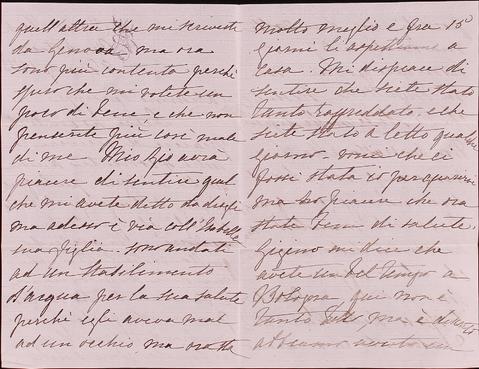 quell'altra che mi scriveste
da Genova ma ora
sono più contenta perchè
spero che mi volete un
poco di bene, e che non
penserete più così male
di me. Mio Zio avrà
piacere di sentire quel
che mi avete detto da dirgli
ma adesso è via coll'Isabella
sua figlia. sono andati
ad un Stabilimento
d'acqua per la sua salute
perchè egli aveva mal
ad un occhio ma ora sta
molto meglio e fra 15
giorni li aspettiamo a
casa. Mi dispiace di
sentire che siete stato
tanto raffreddato, e che
siete stato a letto qualche
giorno, vorrei che ci
fossi stata io per
ma ho piacere che ora
state bene di salute.
Gigino mi dice che
avete un bel tempo a
Bologna, qui non è
tanto bello, ma è
abbiamo avuto un